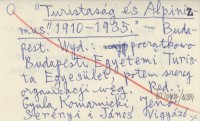 Q "Turistaság és Alpiniz
mus" 1910-1935. - Buda-
pest. Wyd.:
Budapesti Egyetemi Turis-
ta Egyesület, potem szereg
organizacji węg. Red.:
Gyula Komarnicki, Henrik
Serényi i János Vigyázó.